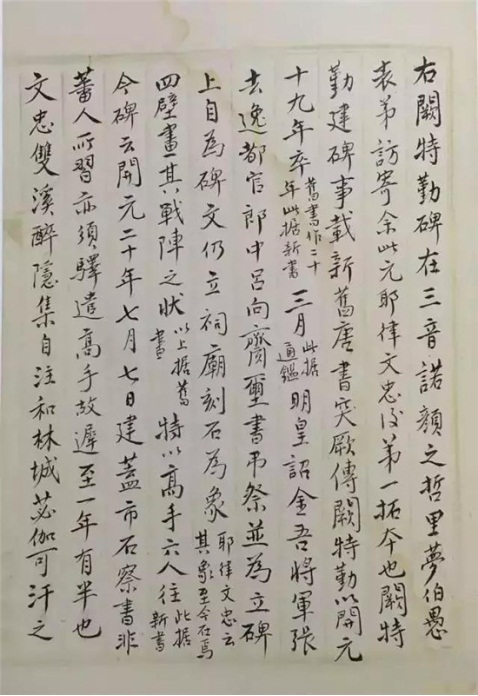 右闕特勤碑在三音諾顏之哲里夢伯愚
表弟訪寄余此元耶律文忠後第一拓本也闕特
勤建碑事載新舊唐書突厥傳闕特勤以開元
十九年卒舊書作二十年此據新書三月此據通鑑明皇詔金吾將軍張
去逸都官郎中呂向齎璽書弔祭並為立碑
上自為碑文仍立祠廟刻石為象耶律文忠云其象至今存焉
四壁畫其戰陣之狀以上據舊書特以高手六人往此據新書
今碑云開元二十年七月七日建蓋市石察書非
蕃人所習亦須驛遣高手故遲至一年有半也
文忠雙溪醉隱集自注和林城苾伽可汗之